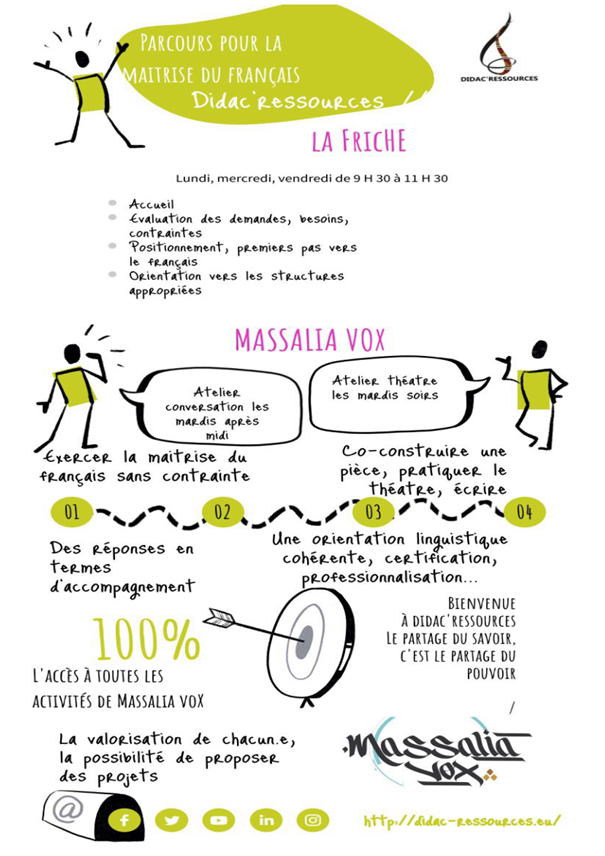 Parcours pour la
maitrise du français
Didac'ressources /
DIDAC'RESSOURCES
la FricHE
Lundi, mercredi, vendredi de 9 H 30 à 11 H 30
Accueil
Evaluation des demandes, besoins,
contraintes
Positionnement, premiers pas vers
le français
Orientation vers les structures
appropriées
MASSALIA VOX
Atelier
conversation les
mardis après
midi
Atelier théatre
les mardis soirs
Exercer la maitrise du
français sans contrainte
Co-construire une
pièce, pratiquer le
théatre, écrire
01
02
03
04
Des réponses en
termes
d'accompagnement
Une orientation linguistique
cohérente, certification,
professionnalisation...
100%
L'accès à toutes les
activités de Massalia voX
Bienvenue
à didac'ressources
Le partage du savoir,
c'est le partage du
pouvoir
/
La valorisation de chacun.e,
la possibilité de proposer
des projets
Massalia
vox
@
http://didac-ressources.eu/